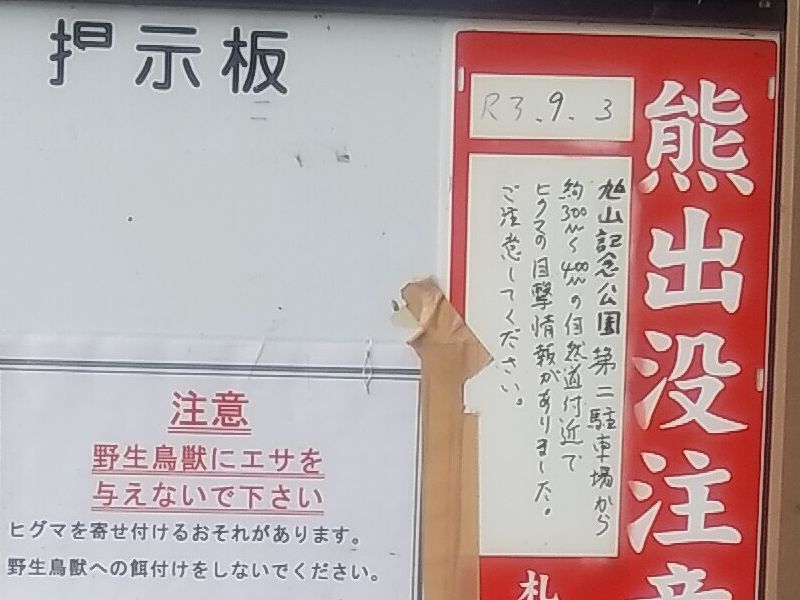 掲示板
熊出没注意
R3.9.3
旭山記念公園第二駐車場から
約300m〜400mの自然道付近で
ヒグマの目撃情報がありました。
ご注意してください。
札
注意
野生鳥獣にエサを
与えないで下さい
ヒグマを寄せ付けるおそれがあります。
野生鳥獣への餌付けをしないでください。